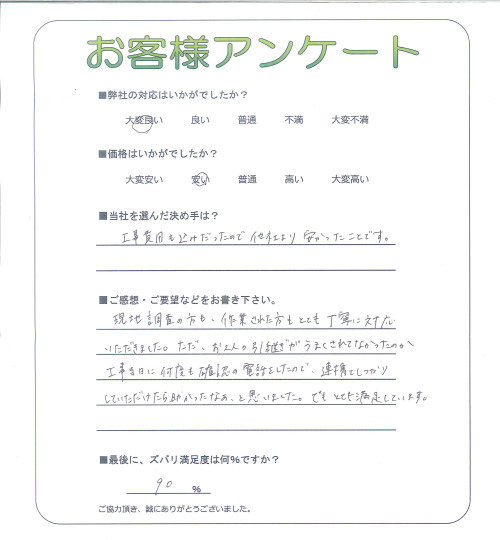 お客様アンケート
■弊社の対応はいかがでしたか？
大変良い 良い 普通 不満 大変不満
■価格はいかがでしたか？
大変安い 安い 普通 高い 大変高い
■当社を選んだ決め手は？
工事費用も込みだったので他社より安かったことです。
■ご感想・ご要望などをお書き下さい。
現地調査の方も、作業された方もとても丁寧に対応
いただきました。ただ、お2人の引継ぎがうまくされてなかったのか
工事当日に何度も確認の電話をしたので、連携をしっかり
していただけたら助かったなぁ、と思いました。でもとても満足しています。
■最後に、ズバリ満足度は何%ですか？
90 %
ご協力頂き、誠にありがとうございました。